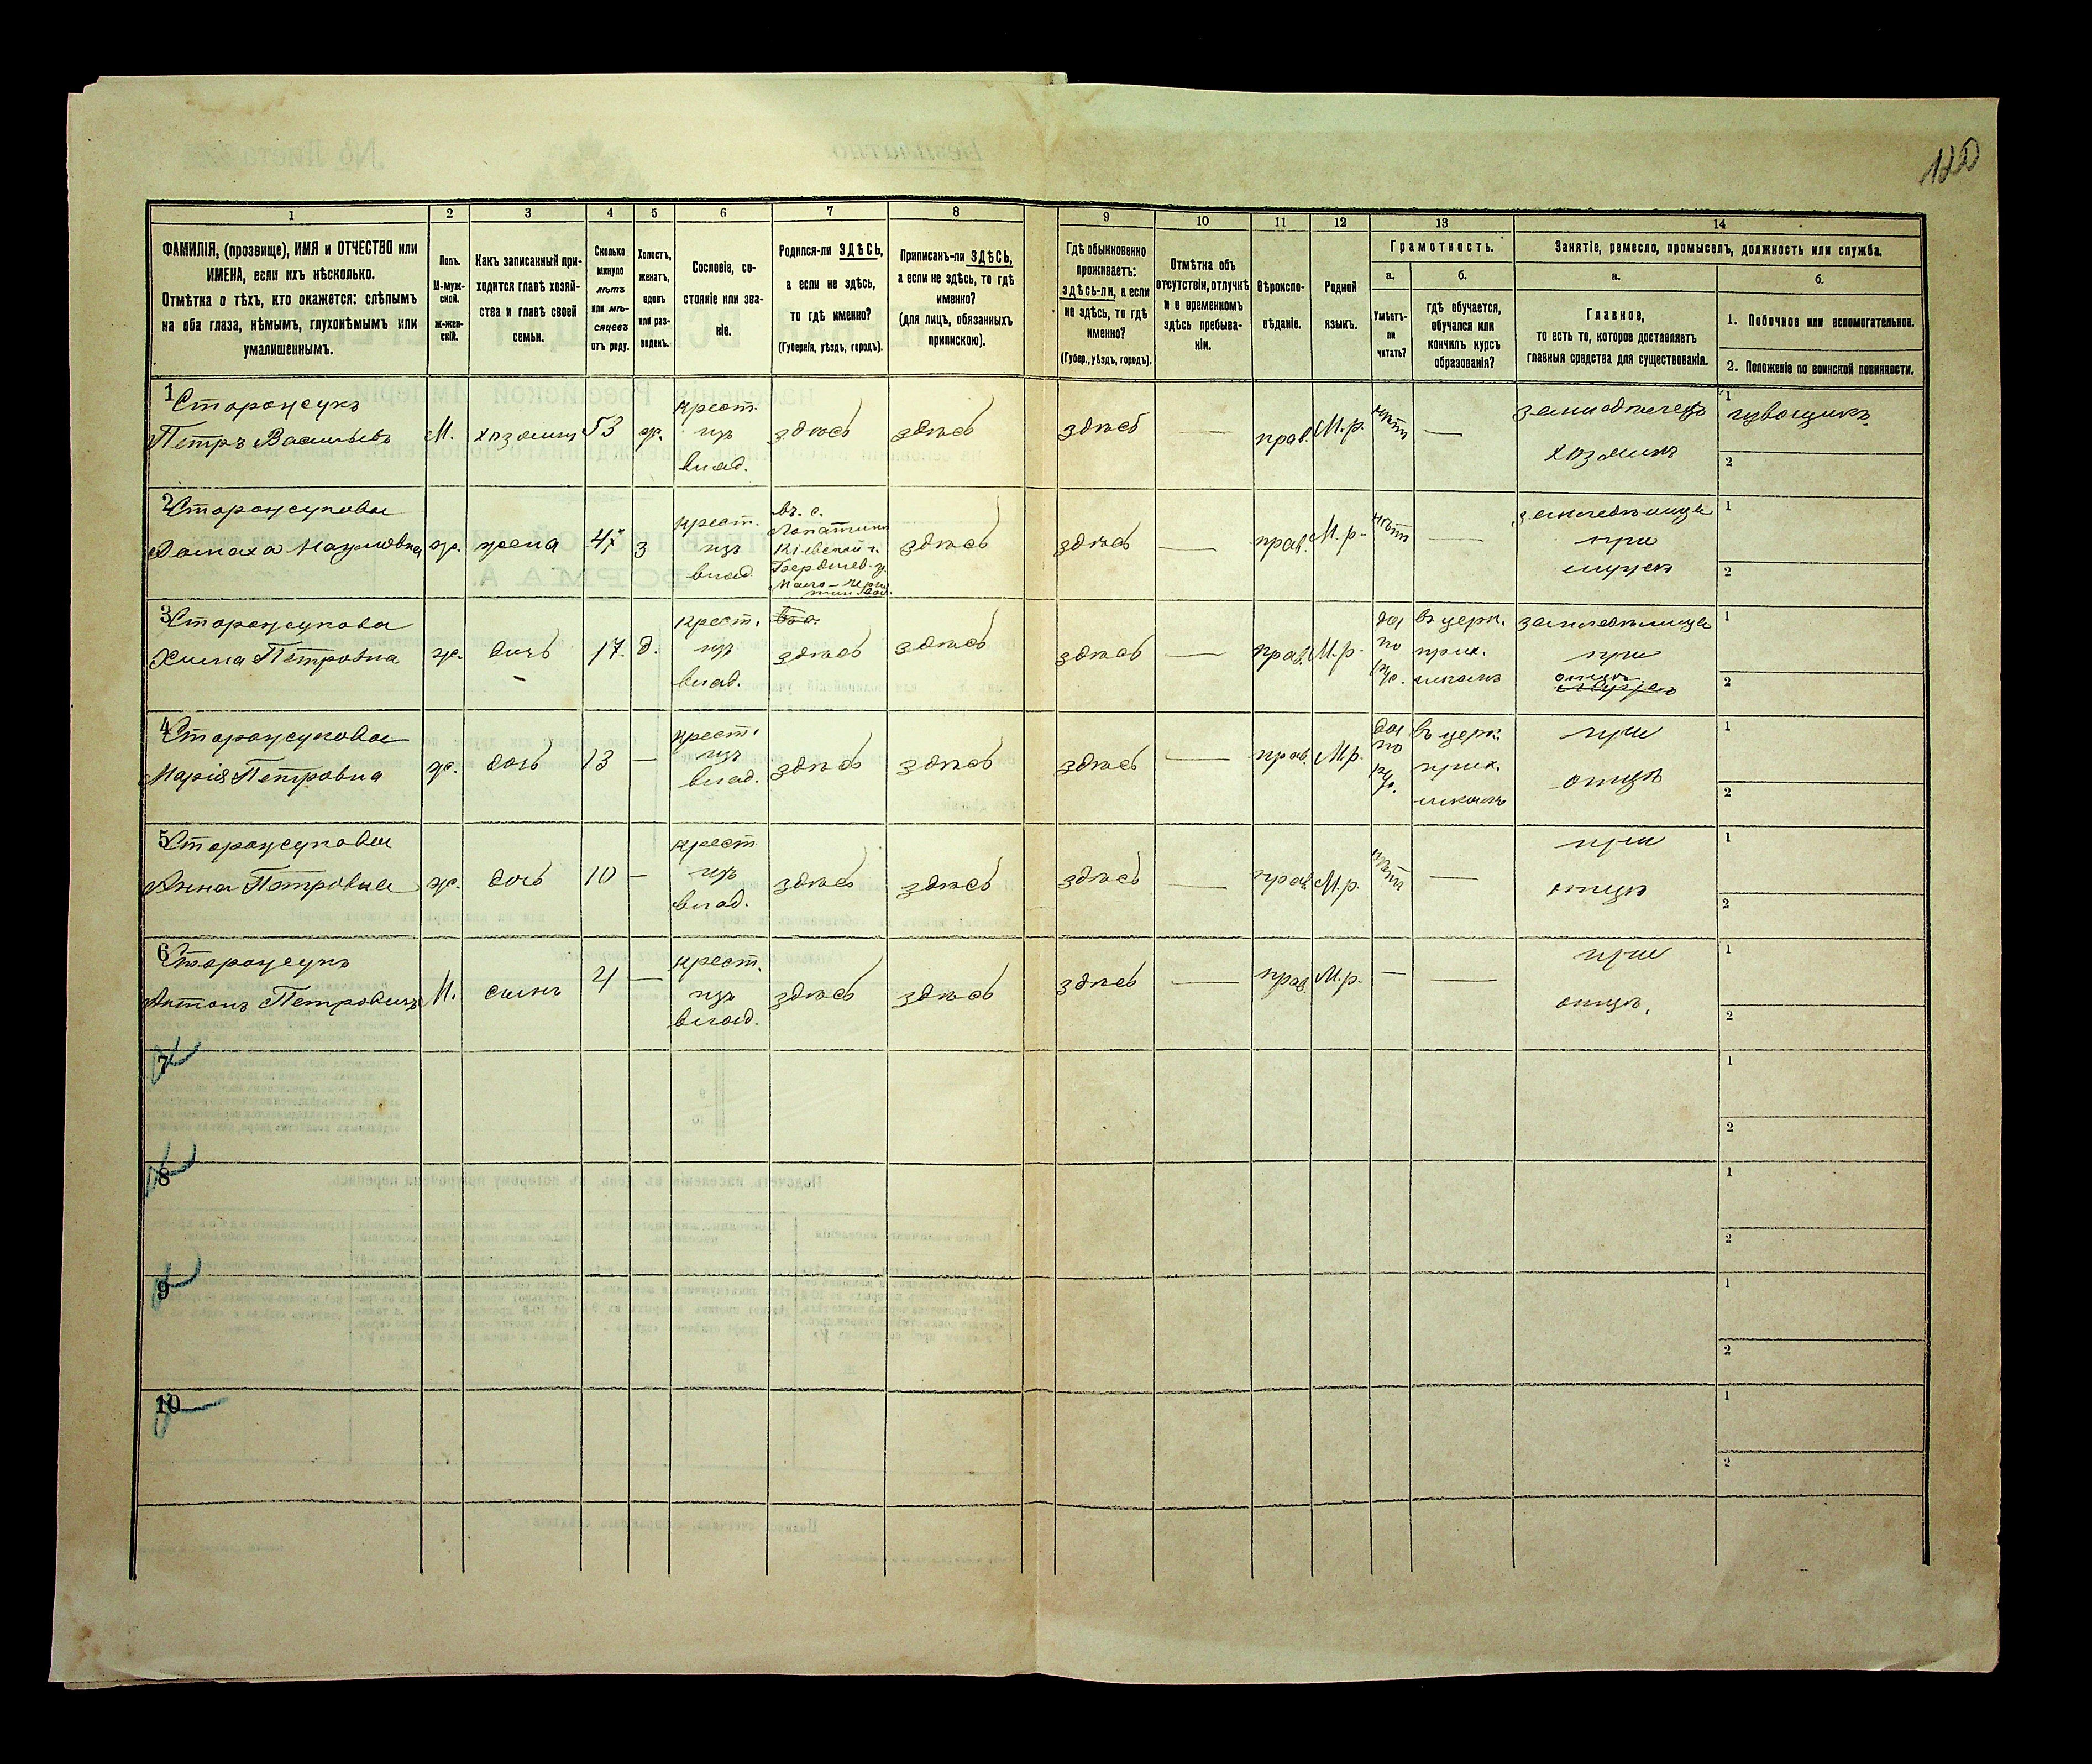 120
1
2
3
4
5
6
7
8
9
10
11
12
13
14
ФАМИЛІЯ, (прозвище), ИМЯ и ОТЧЕСТВО или
ИМЕНА, если ихъ нѣсколько.
Отмѣтка о тѣхъ, кто окажется: слѣпымъ
на оба глаза, нѣмымъ, глухонѣмымъ или
умалишеннымъ.
Полъ.
М-муж-
ской.
ж-жен-
скій.
Какъ записанный при-
ходится главѣ хозяй-
ства и главѣ своей
семьи.
Сколько
минуло
лѣтъ
или мѣ-
сяцевъ
отъ роду.
Холостъ,
женатъ,
вдовъ
или раз-
веденъ.
Сословіе, со-
стояніе или зва-
ніе.
Родился-ли ЗДѢСЬ,
а если не здѣсь,
то гдѣ именно?
(Губернія, уѣздъ, городъ).
Приписанъ-ли ЗДѢСЬ,
а если не здѣсь, то гдѣ
именно?
(для лицъ, обязанныхъ
припискою).
Гдѣ обыкновенно
проживаетъ:
здѣсь-ли, а если
не здѣсь, то гдѣ
именно?
(Губер., уѣздъ, городъ).
Отмѣтка объ
отсутствіи, отлучкѣ
и о временномъ
здѣсь пребыва-
ніи.
Вѣроиспо-
вѣданіе.
Родной
языкъ.
Грамотность.
а.
Умѣетъ-
ли
читать?
б.
гдѣ обучается,
обучался или
кончилъ курсъ
образованія?
Занятіе, ремесло, промыселъ, должность или служба.
а.
Главное,
то есть то, которое доставляетъ
главныя средства для существованія.
б.
1. Побочное или вспомогательное.
2. Положеніе по воинской повинности.
1
Сторожукъ
Петръ Васильевъ
М.
хозяинъ
53
ж.
крест.
изъ
влад.
здѣсь
здѣсь
здѣсь
—
прав.
М.р.
нѣтъ
—
земледѣлецъ
хозяинъ
1
2
2
Сторожукова
Домаха Наумовна
ж.
жена
47
з
крест.
изъ
влад.
въ с.
Кіевской г.
Бердичев. у.
здѣсь
здѣсь
—
прав.
М.р.
нѣтъ
—
земледѣлица
при
мужѣ
1
2
3
Сторожукова
Петровна
ж.
дочь
17.
д.
крест.
изъ
влад.
здѣсь
здѣсь
здѣсь
—
прав.
М.р.
да
по
рус.
въ церк.
прих.
школѣ
земледѣлица
при
отцѣ
1
2
4
Сторожукова
Марія Петровна
ж.
дочь
13
—
крест.
изъ
влад.
здѣсь
здѣсь
здѣсь
—
прав.
М.р.
да
по
рус.
въ церк.
прих.
школѣ
при
отцѣ
1
2
5
Сторожукова
Анна Петровна
ж.
дочь
10
—
крест.
изъ
влад.
здѣсь
здѣсь
здѣсь
—
прав.
М.р.
нѣтъ
—
при
отцѣ
1
2
6
Сторожукъ
Антонъ Петровичъ
М.
сынъ
4
—
крест.
изъ
влад.
здѣсь
здѣсь
здѣсь
—
прав.
М.р.
—
—
при
отцѣ.
1
2
7
1
2
8
1
2
9
1
2
10
1
2